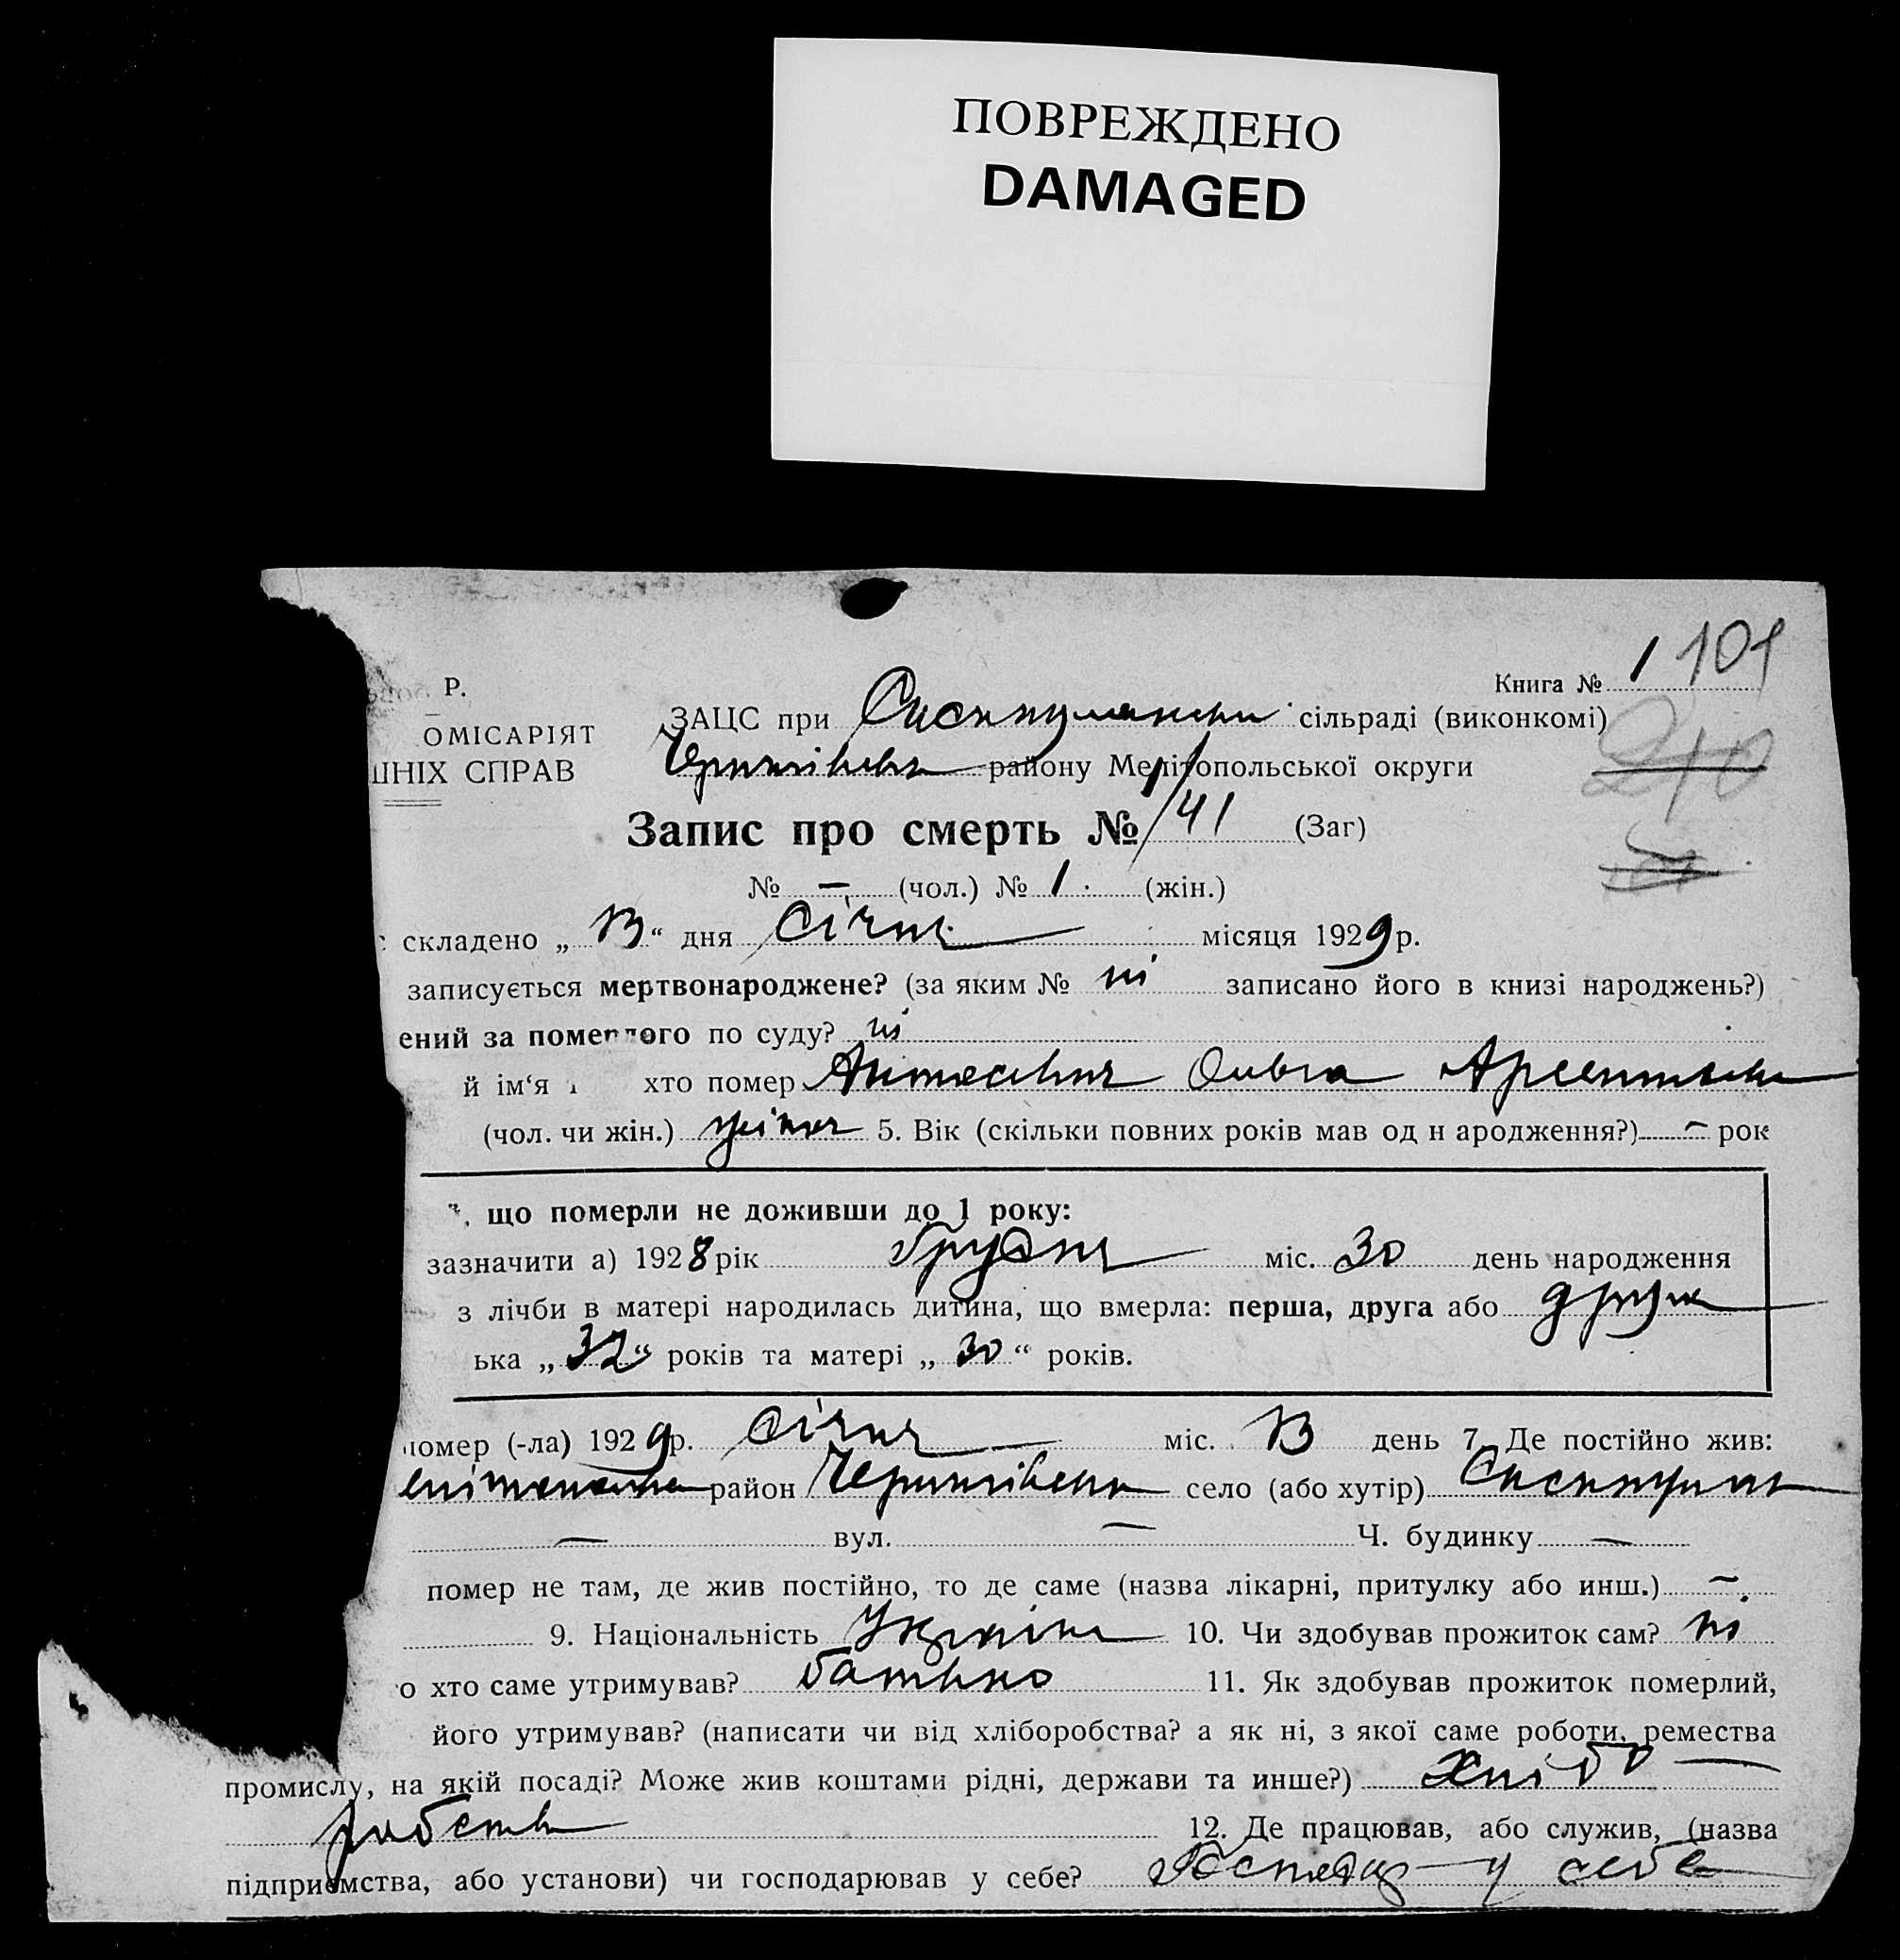 ПОВРЕЖДЕНО
DAMAGED
Книга № 1 101
Р. ЗАЦС при сільраді (виконкомі)
ОМІСАРІЯТ
ШНІХ СПРАВ району Мелітопольської округи
210
Запис про смерть № 1/41 (Заг)
№ — (чол.) № 1. (жін.)
складено „ 13 “ дня Січня місяця 1929 р.
записується мертвонароджене? (за яким № ні записано його в книзі народжень?)
ений за померлого по суду? ні
й ім‘я хто помер Ольга
(чол. чи жін.) жіноч 5. Вік (скільки повних років мав од н ародження?) — рок
що померли не доживши до 1 року:
зазначити а) 1928 рік Грудня міс. 30 день народження
з лічби в матері народилась дитина, що вмерла: перша, друга або друга
ька „ 32 “ років та матері „ 30 “ років.
помер (-ла) 1929 р. Січня міс. 13 день 7. Де постійно жив:
район село (або хутір)
— вул. — Ч. будинку —
помер не там, де жив постійно, то де саме (назва лікарні, притулку або инш.) —
9. Національність 10. Чи здобував прожиток сам? ні
о хто саме утримував? батько 11. Як здобував прожиток померлий,
його утримував? (написати чи від хліборобства? а як ні, з якої саме роботи, ремества
промислу, на якій посаді? Може жив коштами рідні, держави та инше?) Хлібо—
робств 12. Де працював, або служив, (назва
підприємства, або установи) чи господарював у себе? у себе